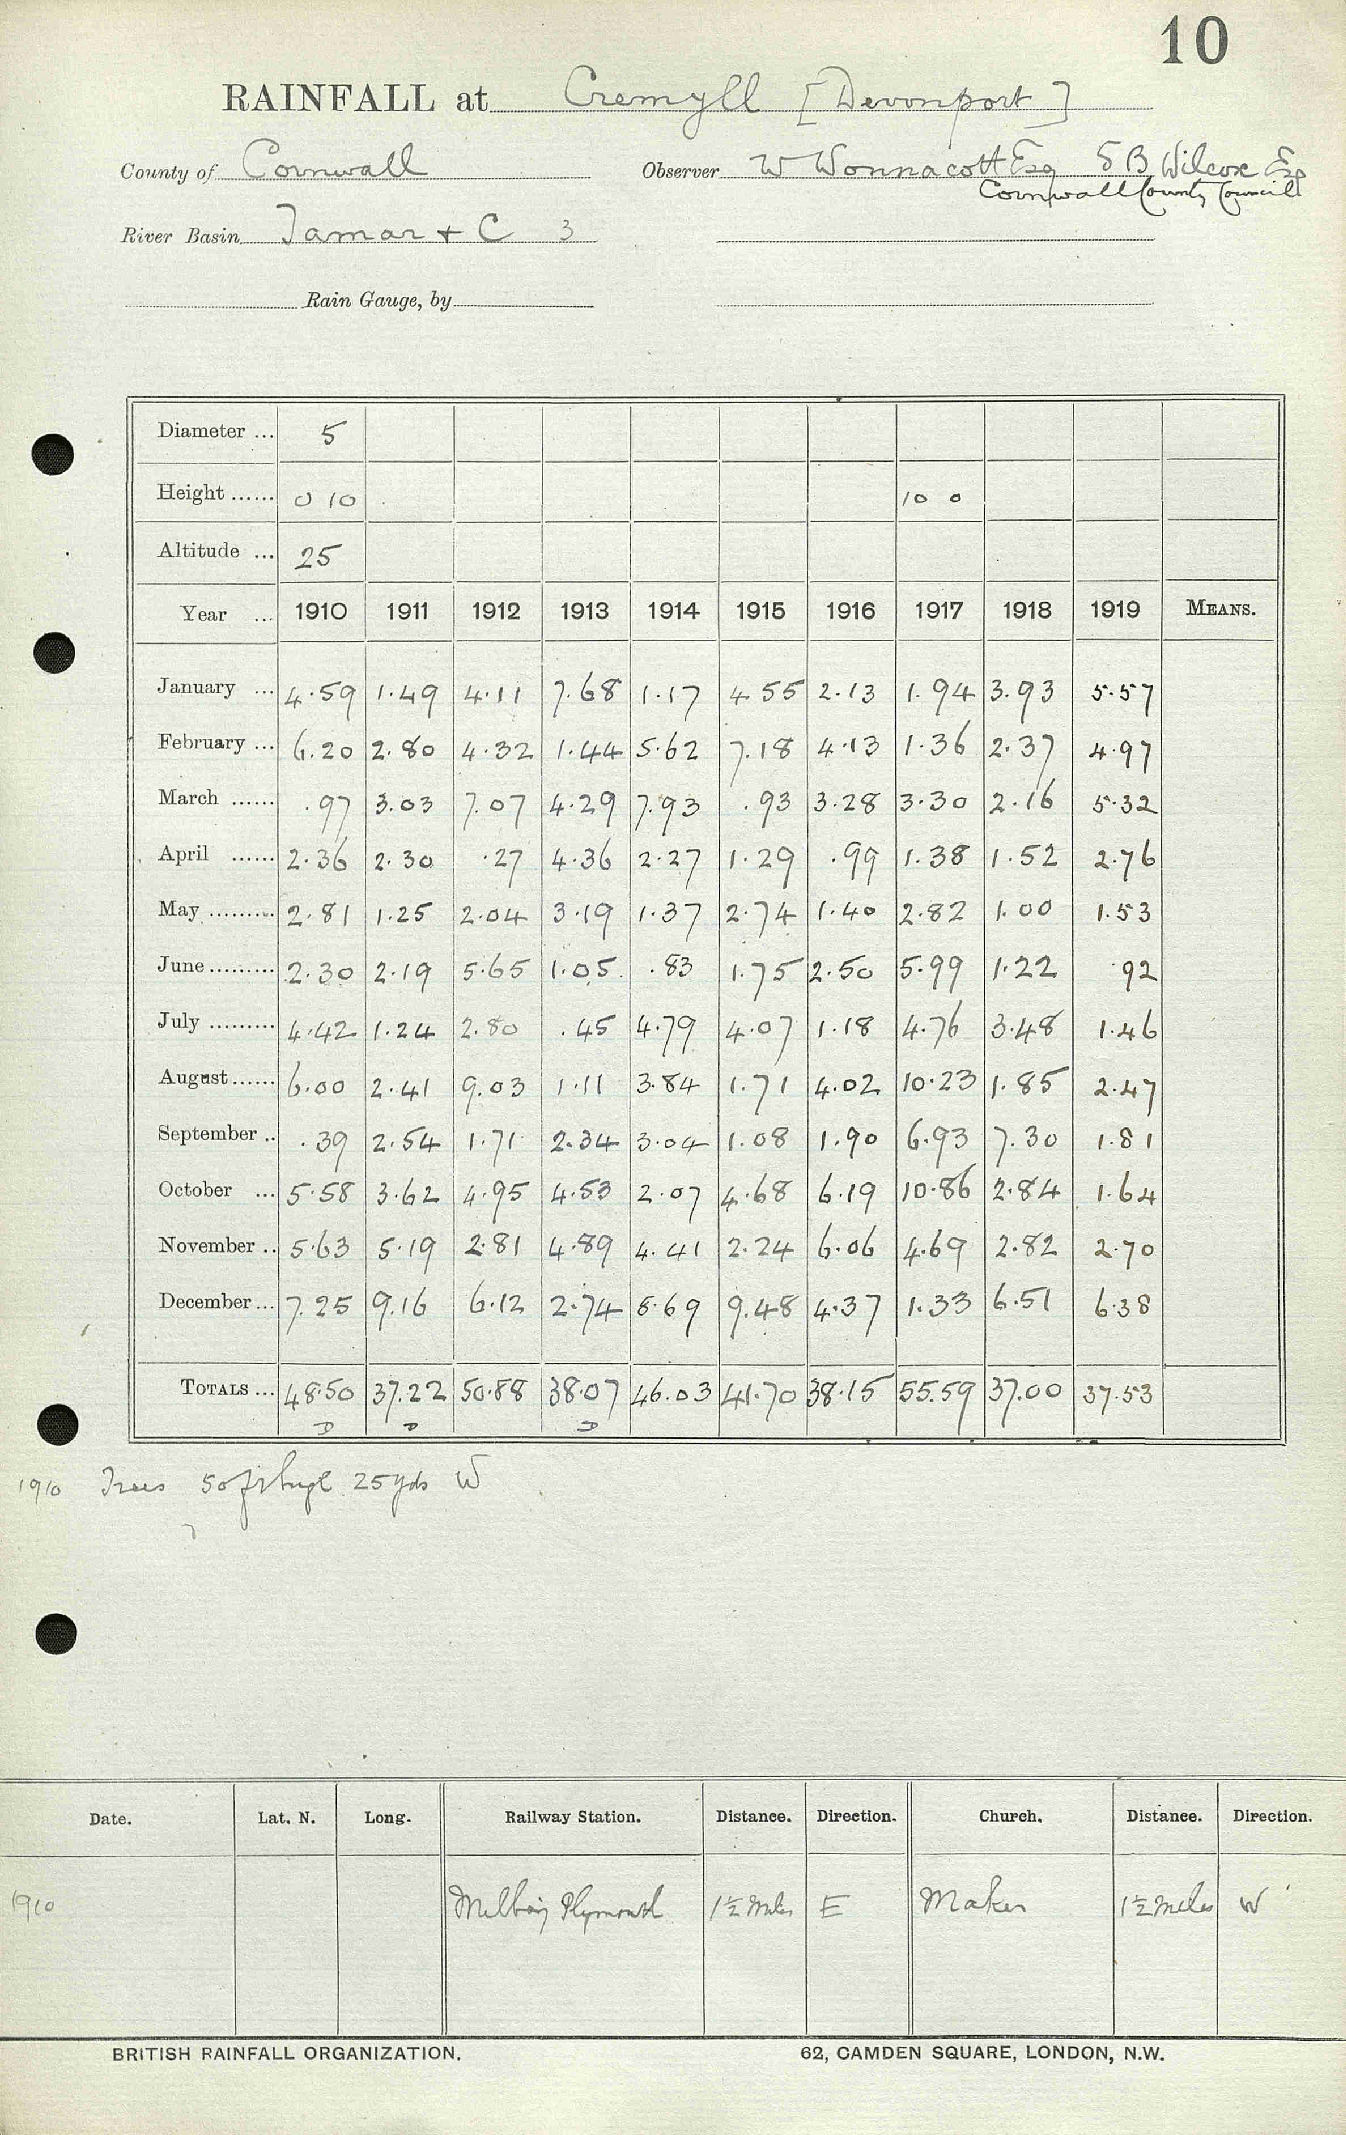 10
RAINFALL at Cremyll [Devonport]
County of Cornwall Observer W Wonnacott Esq S B Wilcox Esq
Cornwall County Council
River Basin Tamar + C 3
Rain Gauge, by
Diameter ... 5
Height ...... 0 10 10 0
Altitude ... 25
Year ... 1910 1911 1912 1913 1914 1915 1916 1917 1918 1919 MEANS.
January ... 4.59 1.49 4.11 7.68 1.17 4 55 2.13 1.94 3.93 5.57
February ... 6.20 2.80 4.32 1.44 5.62 7.18 4.13 1.36 2.37 4.97
March ...... .97 3.03 7.07 4.29 7.93 .93 3.28 3.30 2.16 5.32
April ...... 2.36 2.30 .27 4.36 2.27 1.29 .99 1.38 1.52 2.76
May ......... 2.81 1.25 2.04 3.19 1.37 2.74 1.40 2.82 1.00 1.53
June ......... 2.30 2.19 5.65 1.05 .83 1.75 2.50 5.99 1.22 .92
July ......... 4.42 1.24 2.80 .45 4.79 4.07 1.18 4.76 3.48 1.46
August ...... 6.00 2.41 9.03 1.11 3.84 1.71 4.02 10.23 1.85 2.47
September .. .39 2.54 1.71 2.34 3.04 1.08 1.90 6.93 7.30 1.81
October ... 5.58 3.62 4.95 4.53 2.07 4.68 6.19 10.86 2.84 1.64
November .. 5.63 5.19 2.81 4.89 4.41 2.24 6.06 4.69 2.82 2.70
December ... 7.25 9.16 6.12 2.74 8.69 9.48 4.37 1.33 6.51 6.38
TOTALS ... 48.50 37.22 50.88 38.07 46.03 41.70 38.15 55.59 37.00 37.53
D D D
1910 Trees 50 ft high 25 yds W
Date. Lat. N. Long. Railway Station. Distance. Direction. Church. Distance. Direction.
1910 Millbay Plymouth 1½ Miles E Maker 1½ miles W
BRITISH RAINFALL ORGANIZATION. 62, CAMDEN SQUARE, LONDON, N.W.